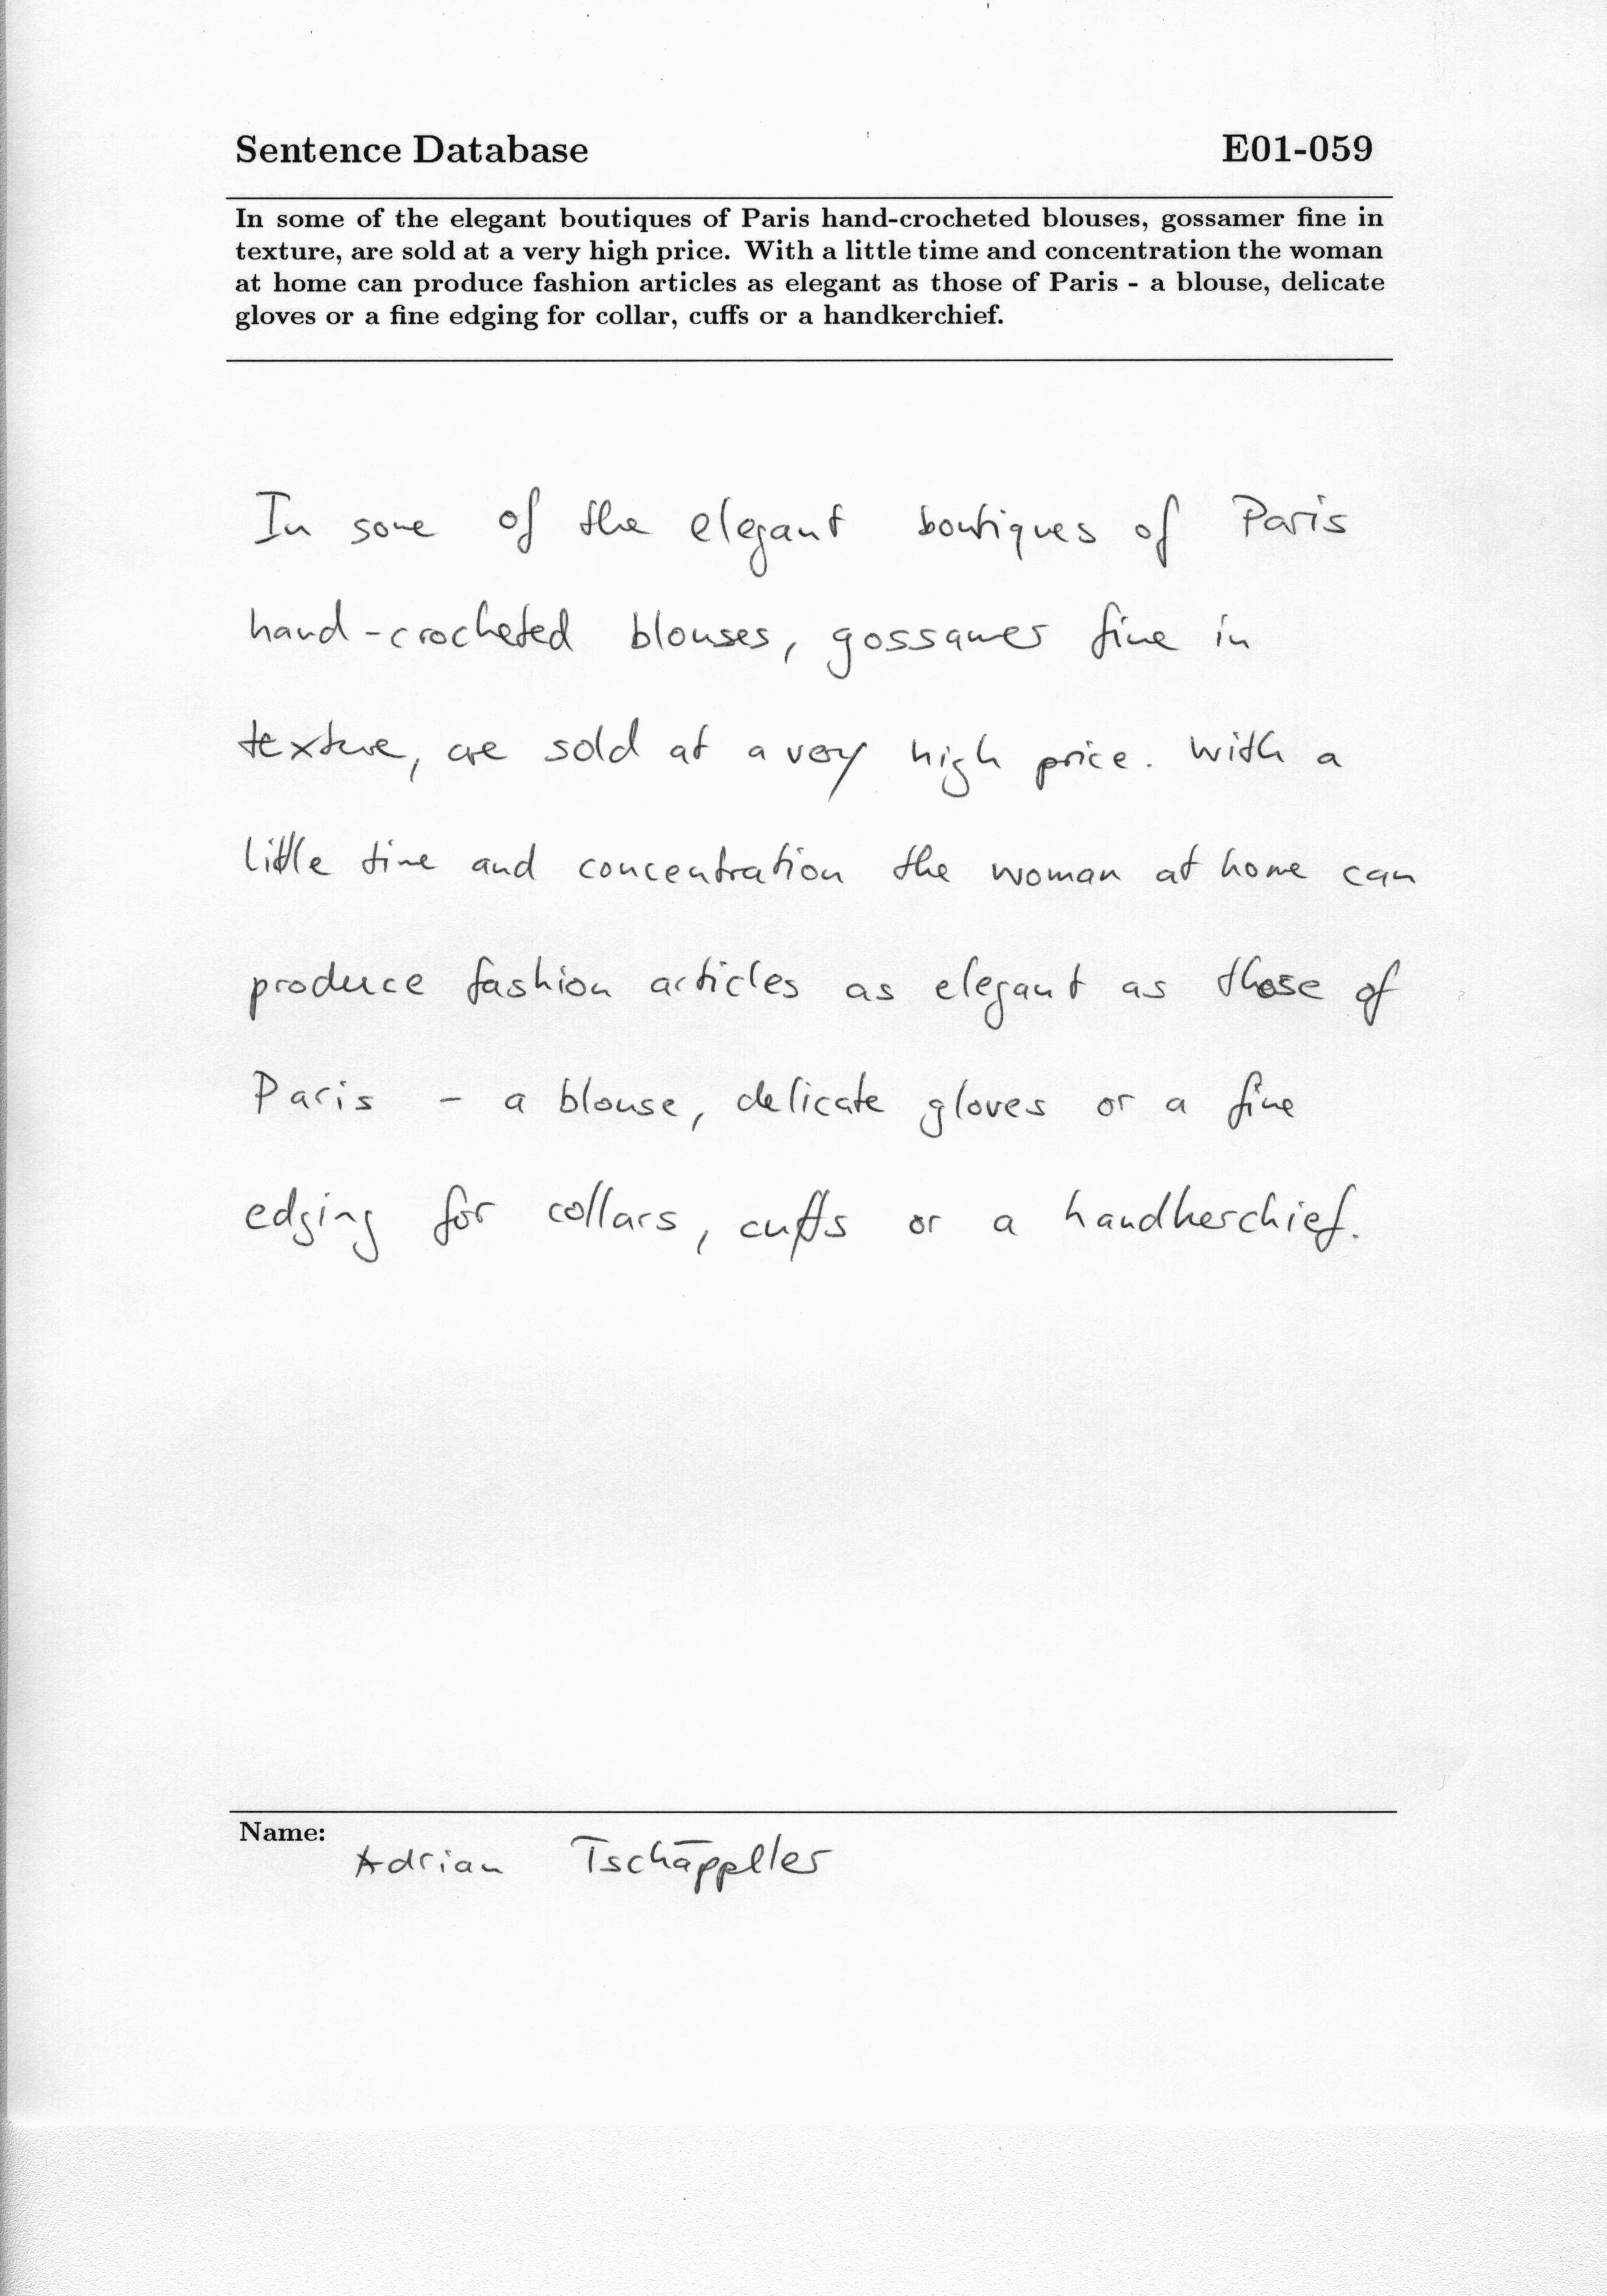 Sentence Database E01-059
In some of the elegant boutiques of Paris hand-crocheted blouses, gossamer fine in
texture, are sold at a very high price. With a little time and concentration the woman
at home can produce fashion articles as elegant as those of Paris - a blouse, delicate
gloves or a fine edging for collar, cuffs or a handkerchief.
In some of the elegant boutiques of Paris
hand-crocheted blouses, gossamer fine in
texture, are sold at a very high price. With a
little time and concentration the woman at home can
produce fashion articles as elegant as those of
Paris - a blouse, delicate gloves or a fine
edging for collars, cuffs or a handkerchief.
Name:
Adrian Tschäppller